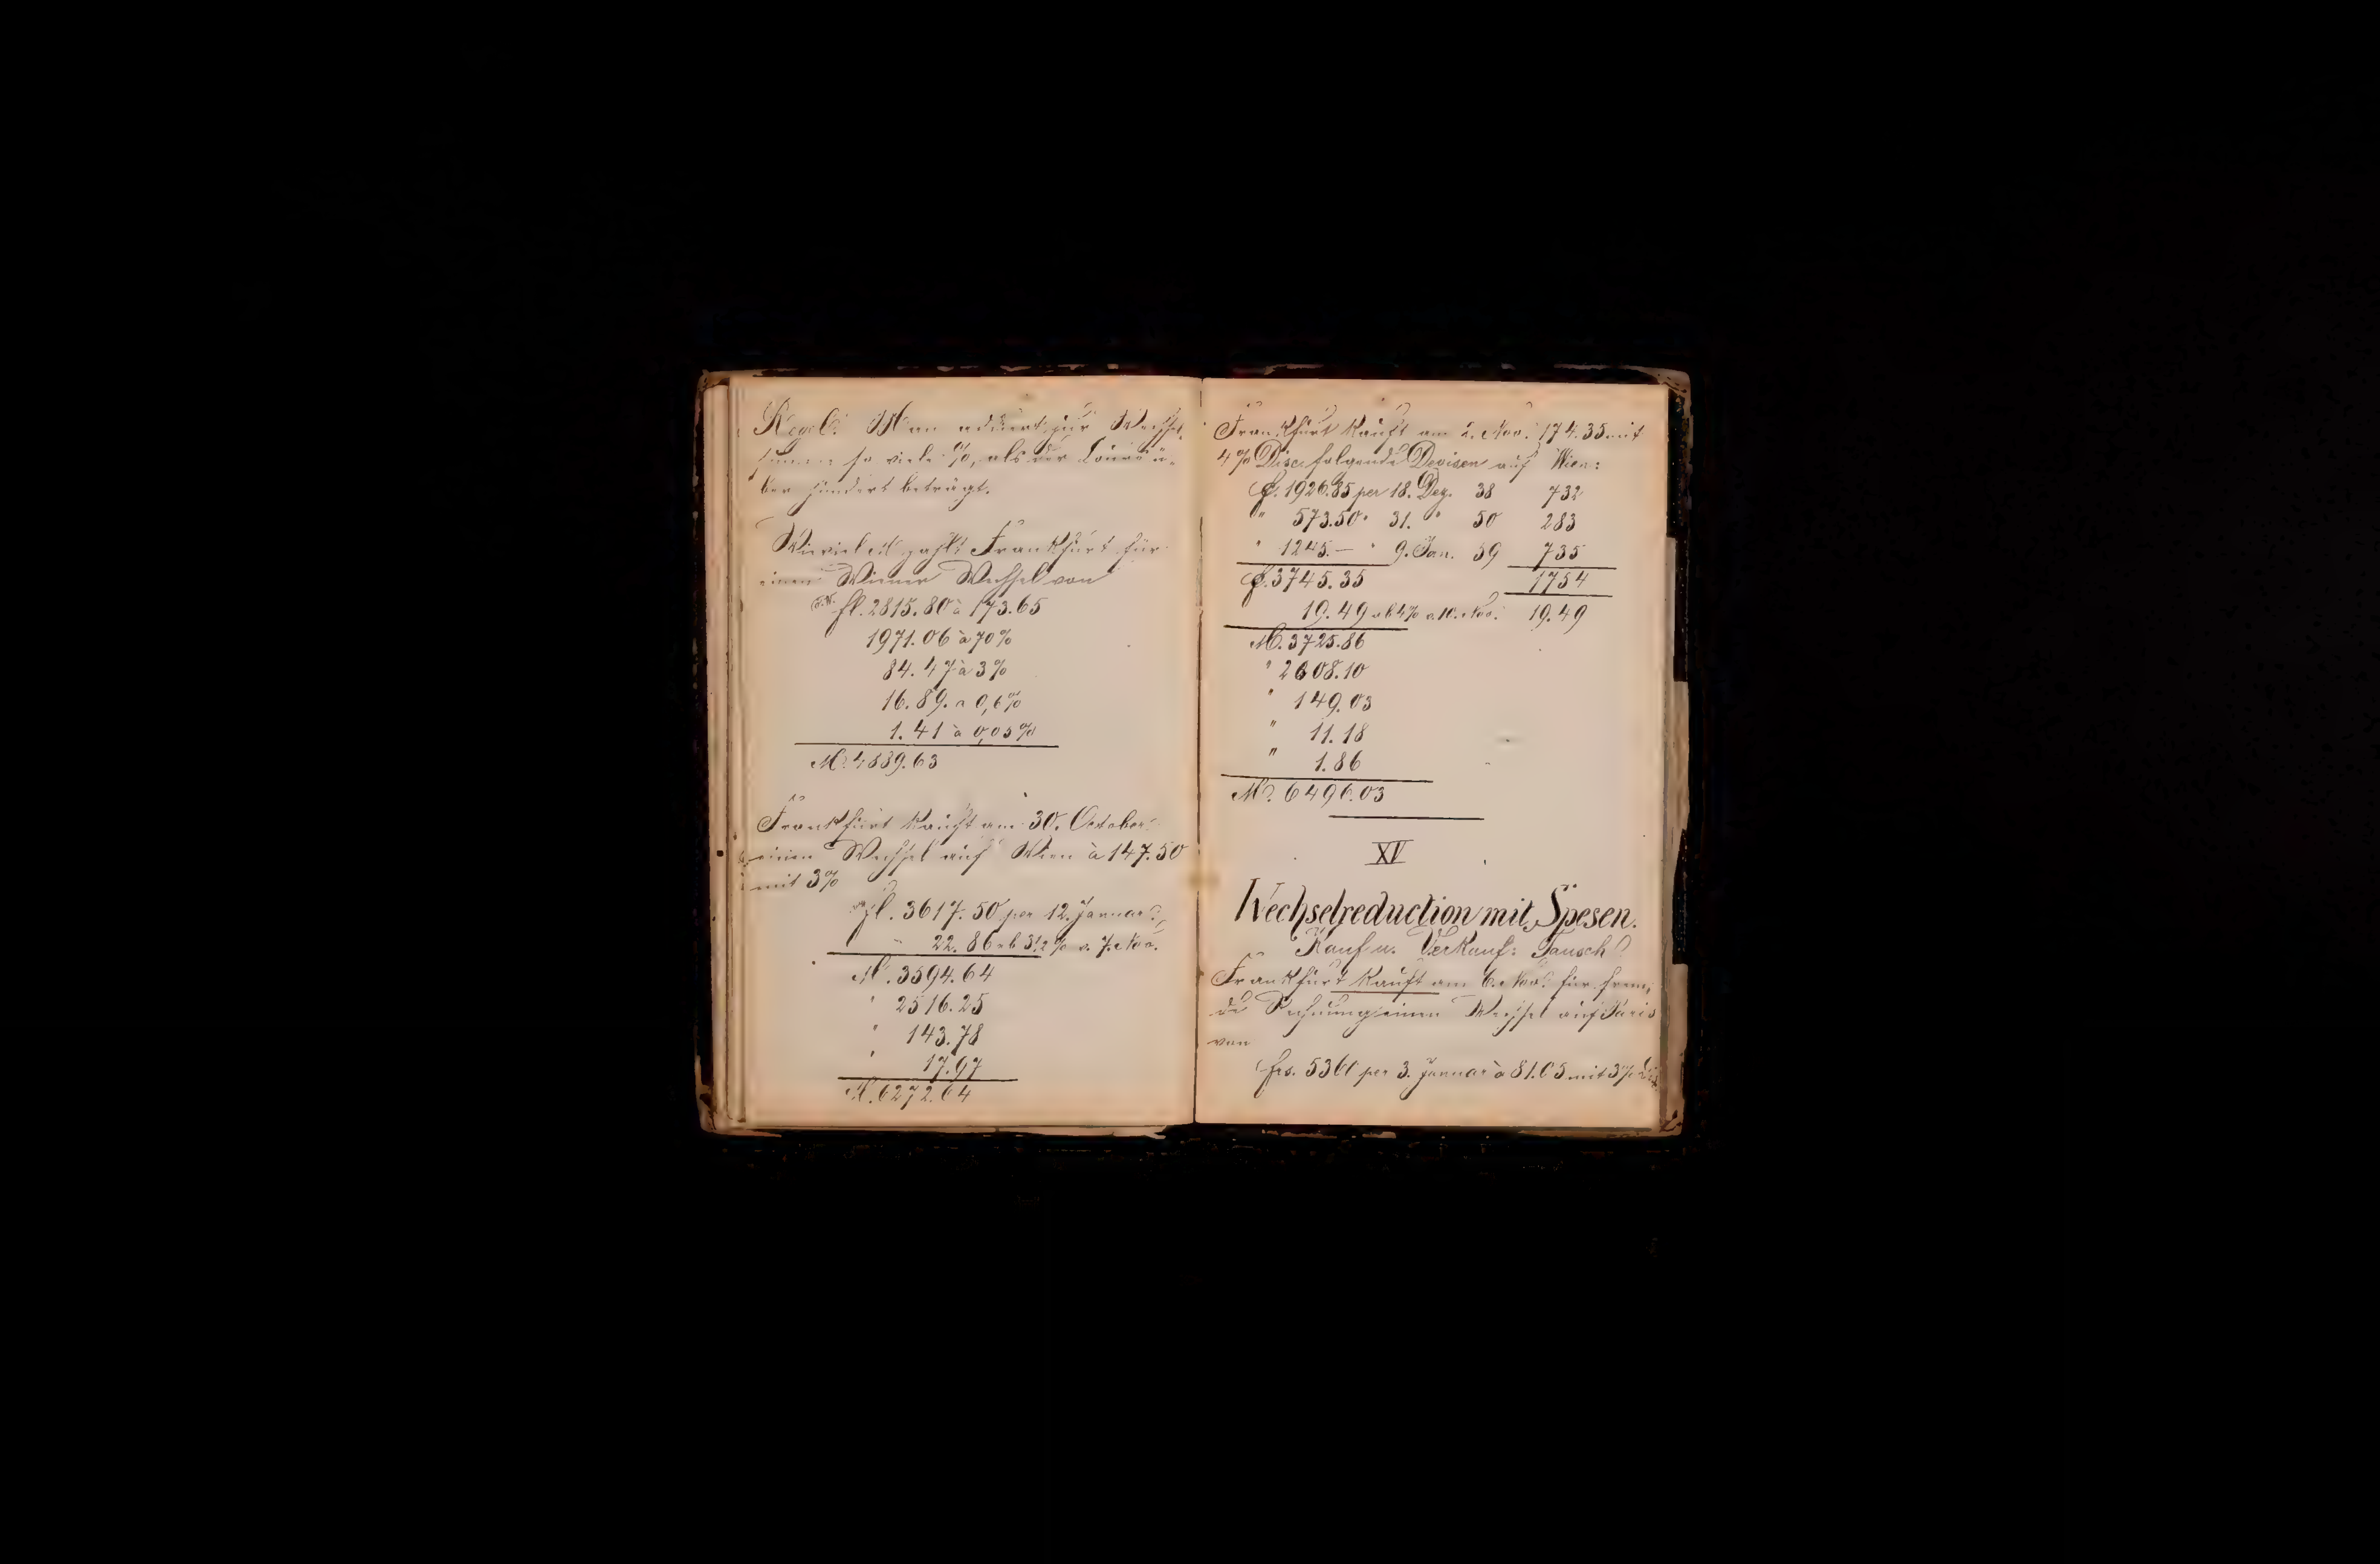 Regel: Man addiert zur Wechsel-
summe so viele %, als der Cours ü-
ber hundert beträgt.
Wieviel M zahlt Frankfurt für
einen Wiener Wechsel von
fl. 2815.80 à 173.65
1971.06 à 70%
84.47 à 3%
16.89. à 0,6%
1.41 à 0,05%
M. 4889.63
Frankfurt kauft am 30. October
einen Wechsel auf Wien à 147.50
mit 3%
fl. 3617.50 per 12. Januar
" 22.86 ab 3 1/2 % v. 7. Nov.
M. 3594.64
" 2516.25
" 143.78
" 17.97
M. 6272.64
Frankfurt kauft am 2. Nov. 174.35 mit
4% Disc. folgende Devisen auf Wien:
fl. 1926.85 per 18. Dez. 38 732
" 573.50 " 31. " 50 283
" 1245.— " 9. Jan. 59 735
fl. 3745.35 1754
19.49 ab 4% a. 10. Nov. 19.49
M. 3725.86
" 2608.10
" 149.03
" 11.18
" 1.86
M. 6496.03
XV
Wechselreduction mit Spesen.
Kauf u. Verkauf: Tausch
Frankfurt kauft am 6. Nov. für frem-
de Rechnung einen Wechsel auf Paris
von
frs. 5360 per 3. Januar à 81.05 mit 3%